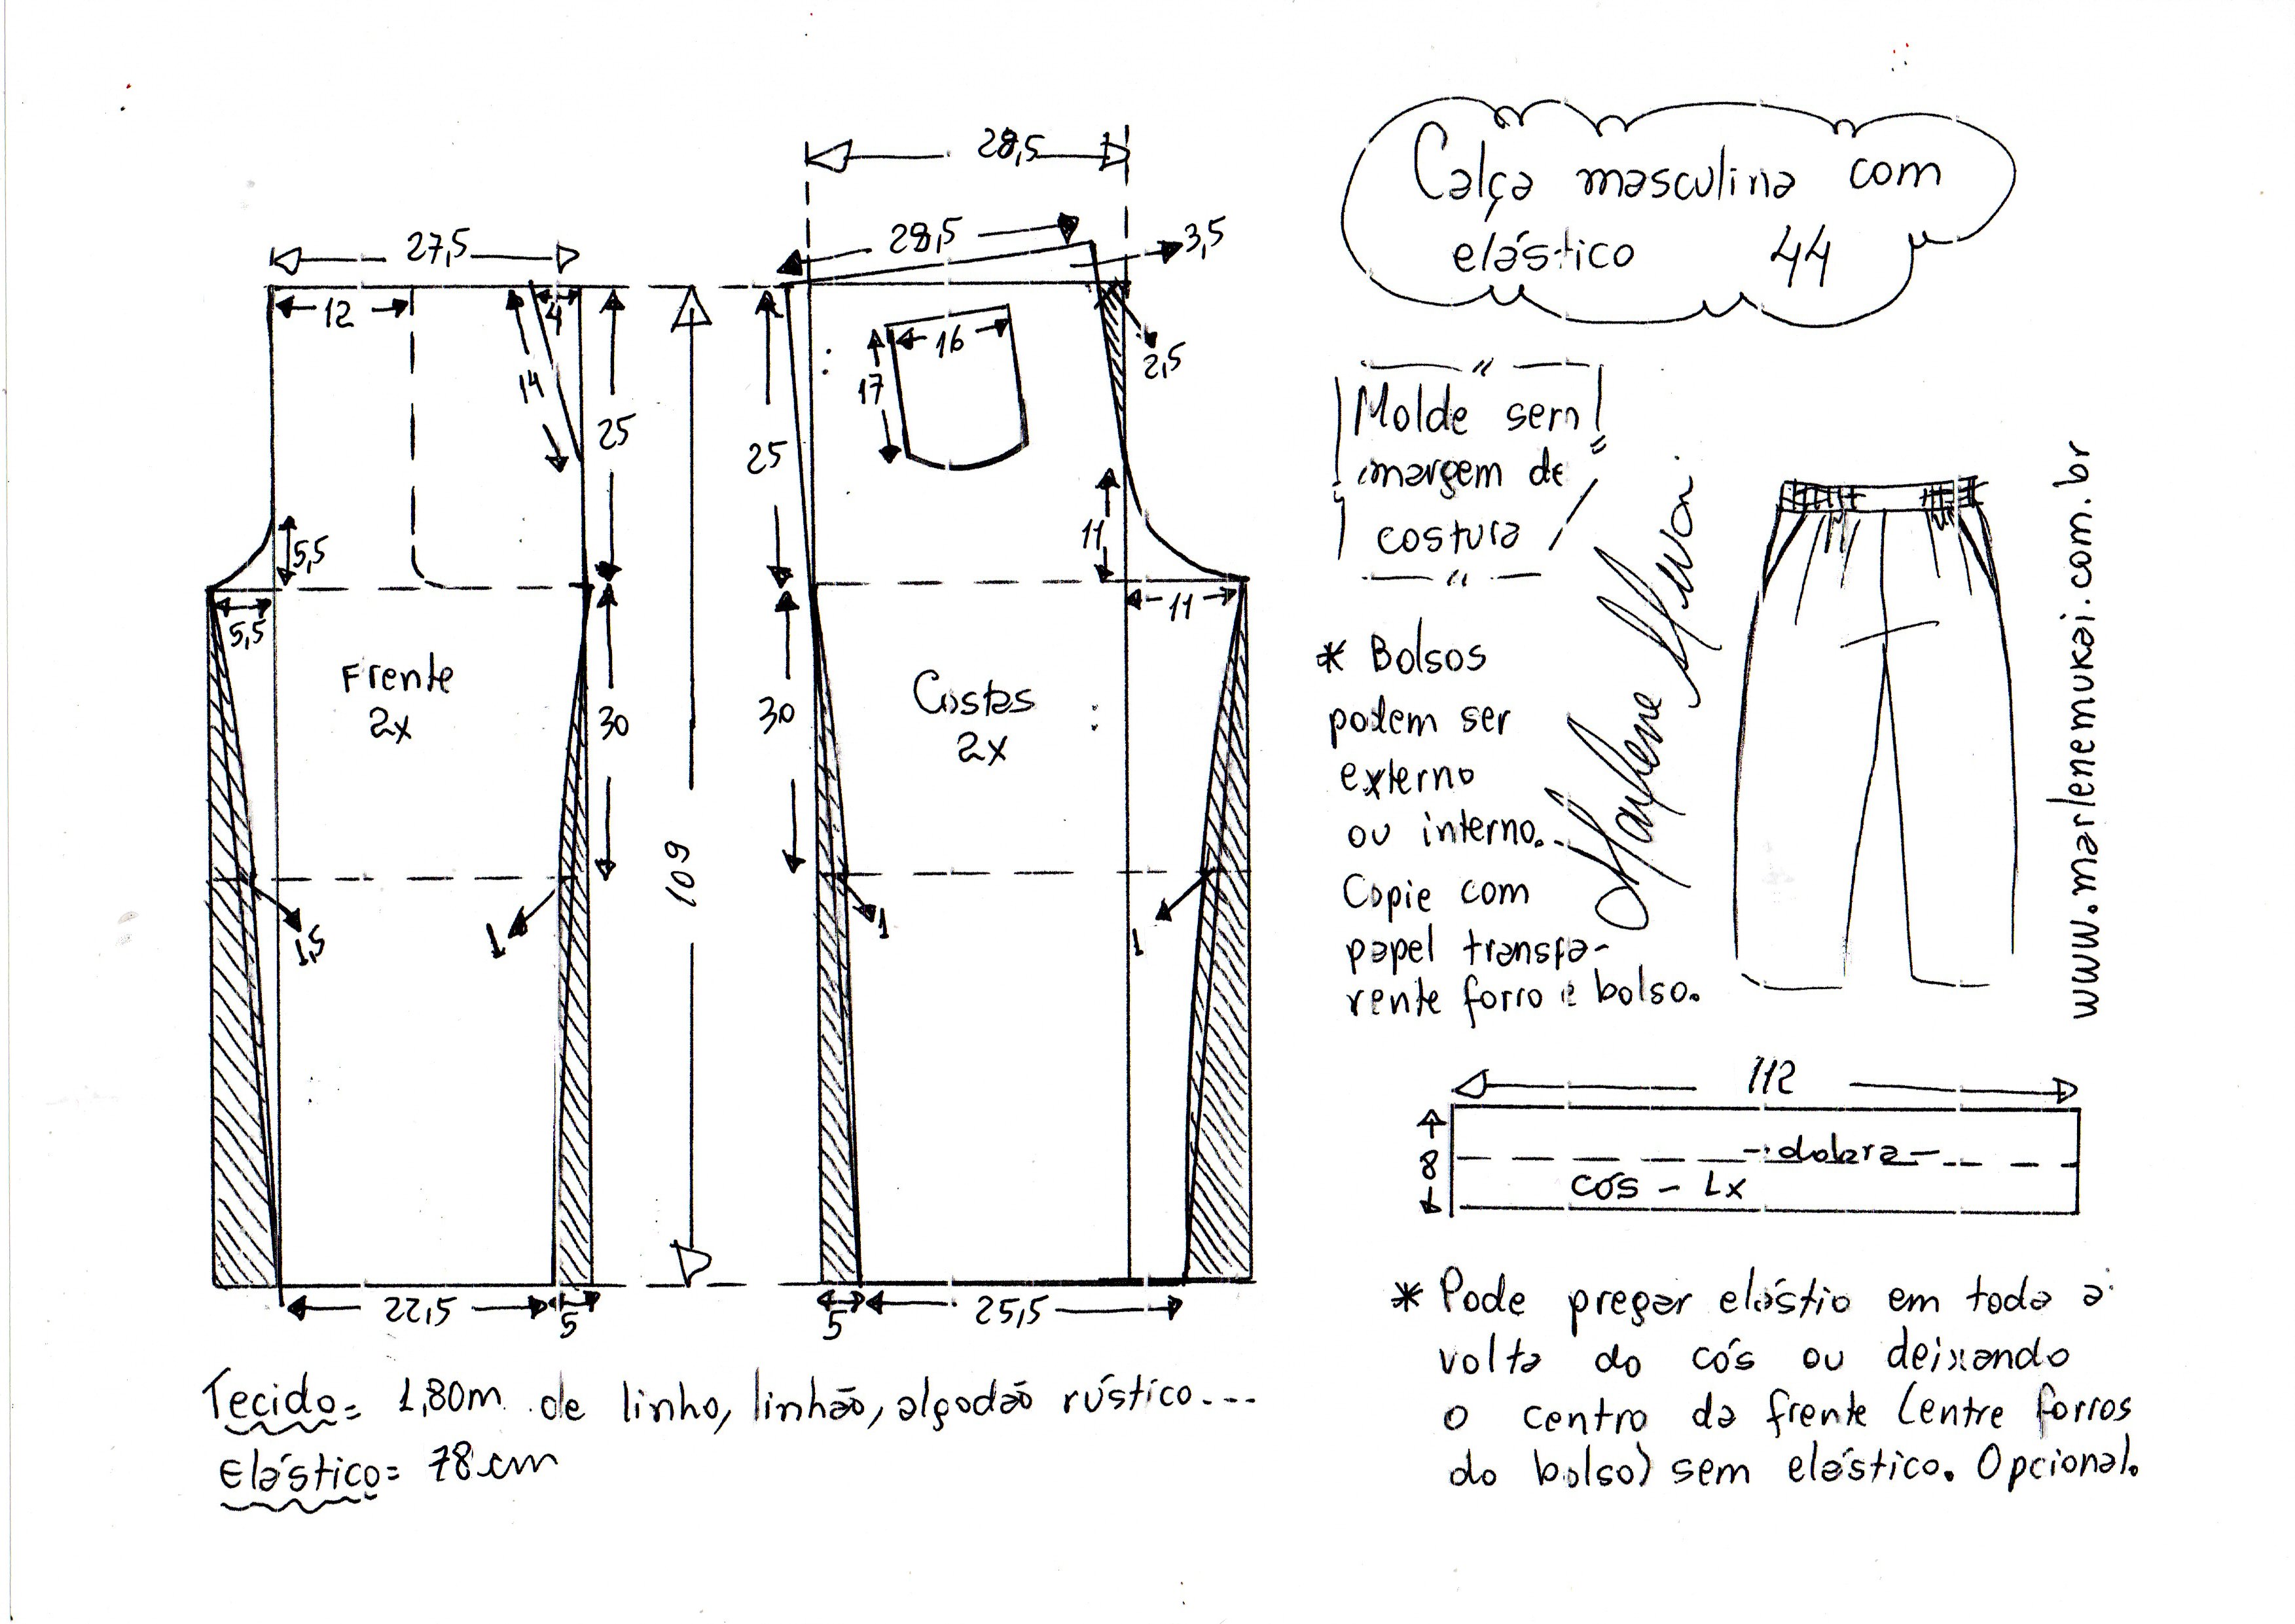 28,5
27,5
28,5
3,5
12
4
14
25
25
16
17
2,5
5,5
5,5
11
11
Frente
2x
Costas
2x
30
30
109
1,5
1
1
1
22,5
5
5
25,5
Tecido= 1,80m de linho, linhão, algodão rústico...
Elástico= 78 cm
Calça masculina com
elástico 44
Molde sem
margem de
costura
* Bolsos
podem ser
externo
ou interno.
Copie com
papel transpa-
rente forro e bolso.
Marlene Mukai
www.marlenemukai.com.br
112
8
dobra
cós - 1x
* Pode pregar elástio em toda a
volta do cós ou deixando
o centro da frente (entre forros
do bolso) sem elástico. Opcional.